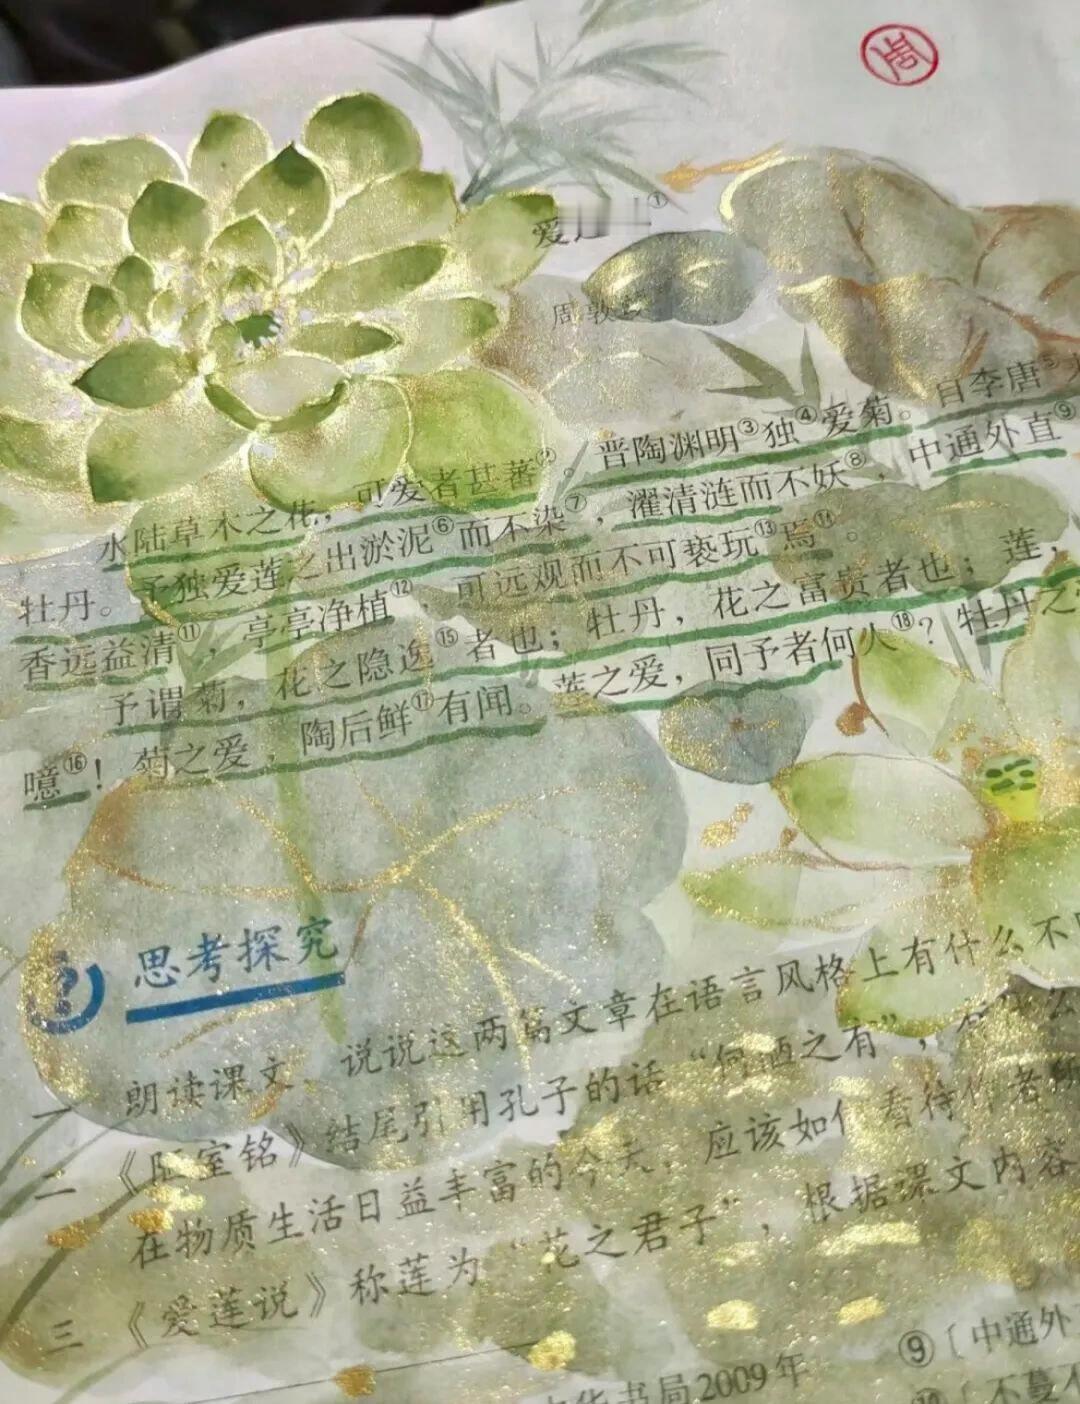 周
爱
①
周敦
水陆草木之花，可爱者甚蕃②。晋陶渊明③独④爱菊。自李唐⑤
牡丹。予独爱莲之出淤泥⑥而不染⑦，濯清涟而不妖⑧，中通外直⑨
香远益清⑪，亭亭净植⑫，可远观而不可亵玩⑬焉⑭。
予谓菊，花之隐逸⑮者也；牡丹，花之富贵者也；莲，
噫⑯！菊之爱，陶后鲜⑰有闻。莲之爱，同予者何人⑱？牡丹之
思考探究
一 朗读课文，说说这两篇文章在语言风格上有什么不
二 《陋室铭》结尾引用孔子的话“何陋之有”，有什么
在物质生活日益丰富的今天，应该如何看待作者所
三 《爱莲说》称莲为“花之君子”，根据课文内容
华书局2009年
⑨〔中通外
⑩〔不蔓不